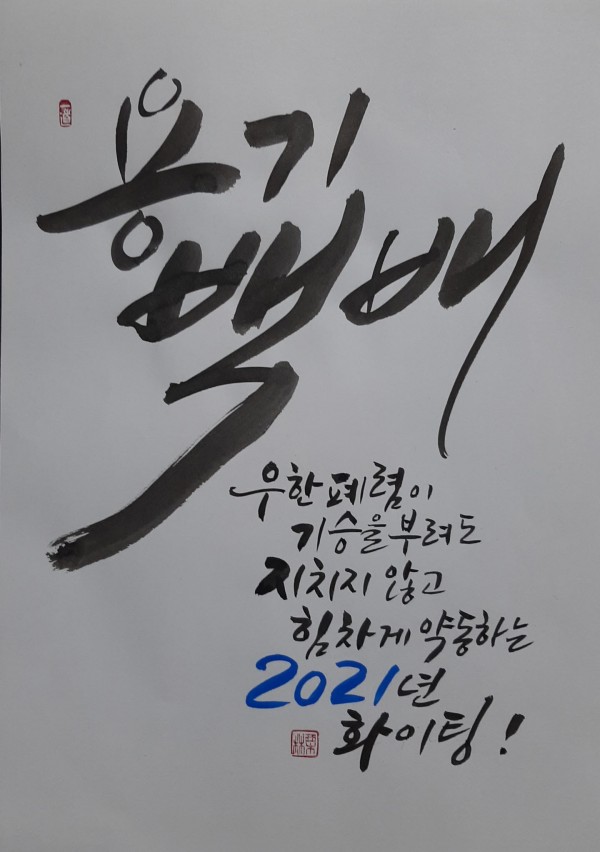 용기
백배
우한폐렴이
기승을 부려도
지치지 않고
힘차게 약동하는
2021년
화이팅!